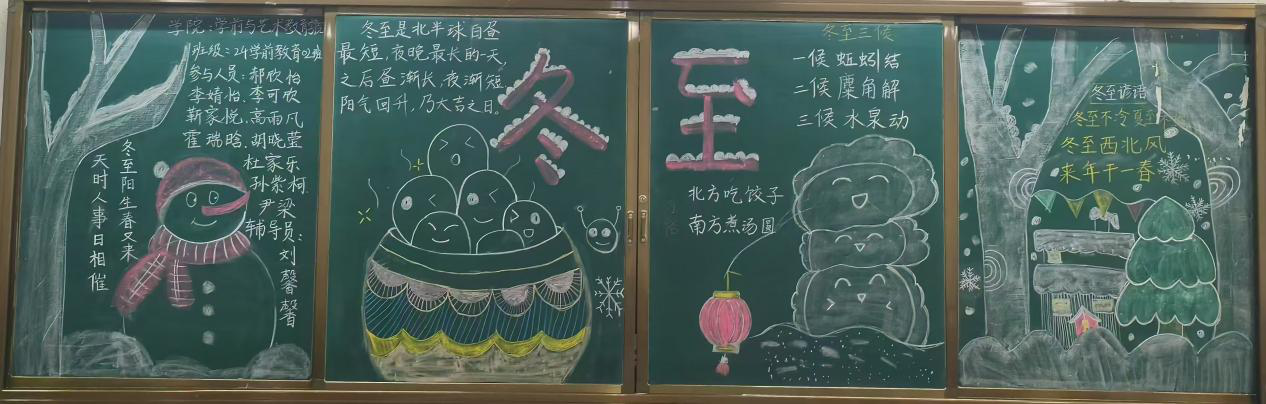 学院:学前与艺术教育学院
班级:24学前教育02班
参与人员:郝欣怡
李婧怡.李可欣
靳家悦.高雨凡
霍瑞晗.胡晓莹
杜家乐
孙紫柯
尹梁
辅导员:
刘馨馨
冬至阳生春又来
天时人事日相催
冬至是北半球白昼
最短,夜晚最长的一天,
之后昼渐长,夜渐短,
阳气回升,乃大吉之日。
冬至
冬至三候
一候蚯蚓结
二候麋角解
三候水泉动
北方吃饺子
南方煮汤圆
冬至谚语
冬至不冷夏至
冬至西北风
来年干一春